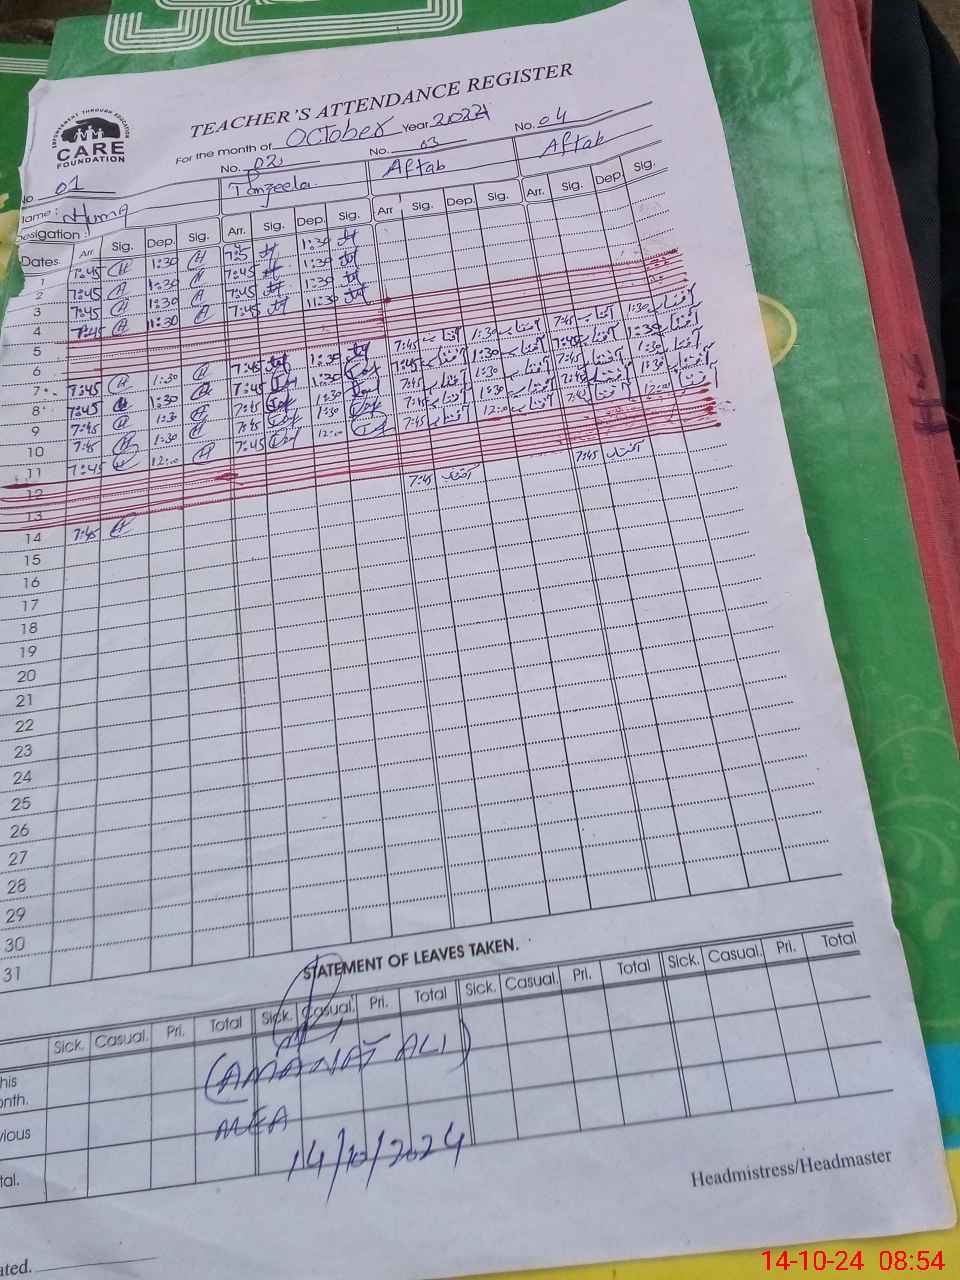 EMPOWERMENT THROUGH EDUCATION
CARE
FOUNDATION
TEACHER'S ATTENDANCE REGISTER
For the month of October Year 2024
No 01 No. 02 No. 03 No. 04
Name: Huma Tanzeela Aftab Aftab
Desigation:
Dates. Arr Sig. Dep. Sig. Arr. Sig. Dep. Sig. Arr Sig. Dep. Sig. Arr. Sig. Dep. Sig.
1 7:45 1:30 1:30
2 7:45 1:30 7:45 1:30
3 7:45 1:30 7:45 1:30
4 7:45 11:30 7:45 11:30
5
6
7 7:45 1:30 7:45 1:30 7:45 آفتاب 1:30 آفتاب 7:45 آفتاب 1:30 آفتاب
8 7:45 1:30 7:45 1:30 7:45 آفتاب 1:30 آفتاب 7:45 آفتاب 1:30 آفتاب
9 7:45 1:30 7:45 1:30 7:45 آفتاب 1:30 آفتاب 7:45 آفتاب 1:30 آفتاب
10 7:45 1:30 7:45 1:30 7:45 آفتاب 1:30 آفتاب 7:45 آفتاب 1:30 آفتاب
11 7:45 12:00 7:45 12:00 7:45 آفتاب 12:00 آفتاب 7:45 آفتاب 12:00 آفتاب
12
13
14 7:45 7:45 آفتاب 7:45 آفتاب
15
16
17
18
19
20
21
22
23
24
25
26
27
28
29
30
31
STATEMENT OF LEAVES TAKEN.
Sick. Casual. Pri. Total Sick. Casual. Pri. Total Sick. Casual. Pri. Total Sick. Casual. Pri. Total
his
onth.
vious
tal.
(AMANAT ALI)
MEA
14/10/2024
Headmistress/Headmaster
ated.
14-10-24 08:54